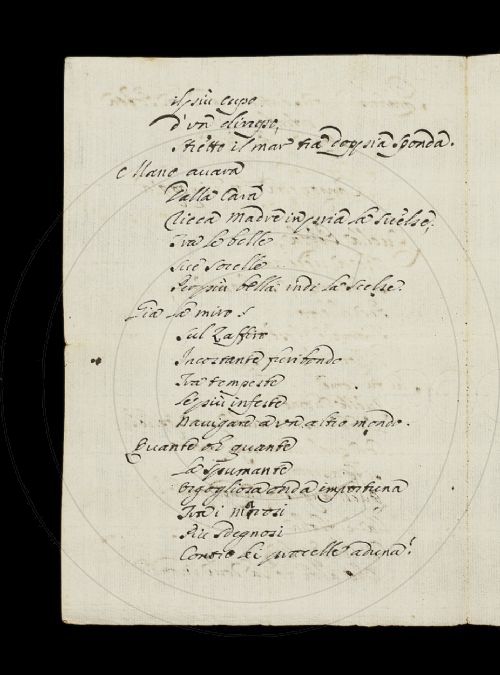 il più cupo
d'un
stretto il mar tra doppia sponda.
E mano avara
Dalla cara
Ricca Madre in pria la svelse;
Tra le belle
sue sorelle
Per più bella indi la scelse.
Già la miro
sul Zaffiro
Incostante furibondo
Tra tempeste
le più infeste
Navigare a un altro mondo.
Quante oh quante
la spumante
Orgogliosa onda importuna
Tra i marosi
Più sdegnosi
Contro lei procelle aduna!